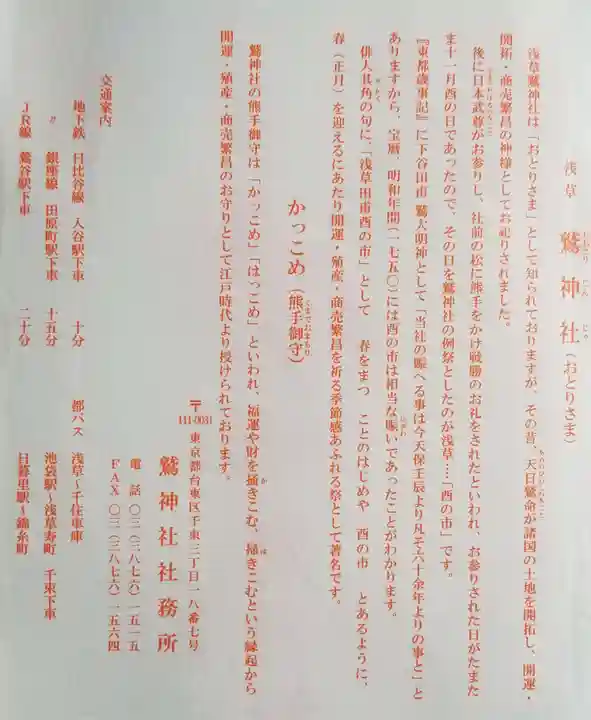 浅草 鷲神社（おとりさま）
浅草鷲神社は「おとりさま」として知られておりますが、その昔、天日鷲命が諸国の土地を開拓し、開運・
開拓・商売繁昌の神様としてお祀りされました。
後に日本武尊がお参りし、社前の松に熊手をかけ戦勝のお礼をされたといわれ、お参りされた日がたまた
ま十一月酉の日であったので、その日を鷲神社の例祭としたのが浅草…「酉の市」です。
『東都歳事記』に下谷田甫 鷲大明神として「当社の賑へる事は今天保壬辰より凡そ六十余年よりの事と」と
ありますから、宝暦、明和年間（一七五〇）には酉の市は相当な賑いであったことがわかります。
俳人其角の句に、「浅草田甫酉の市」として 春をまつ ことのはじめや 酉の市 とあるように、
春（正月）を迎えるにあたり開運・殖産・商売繁昌を祈る季節感あふれる祭として著名です。
かっこめ（熊手御守）
鷲神社の熊手御守は「かっこめ」「はっこめ」といわれ、福運や財を掻きこむ、掃きこむという縁起から
開運・殖産・商売繁昌のお守りとして江戸時代より授けられております。
〒111-0031 東京都台東区千束三丁目一八番七号
鷲神社社務所
電話 〇三（三八七六）一五一五
FAX 〇三（三八七六）一五六四
交通案内
地下鉄 日比谷線 入谷駅下車 十分 都バス 浅草〜千住車庫
〃 銀座線 田原町駅下車 十五分 池袋駅〜浅草寿町 千束下車
JR線 鶯谷駅下車 二十分 日暮里駅〜錦糸町